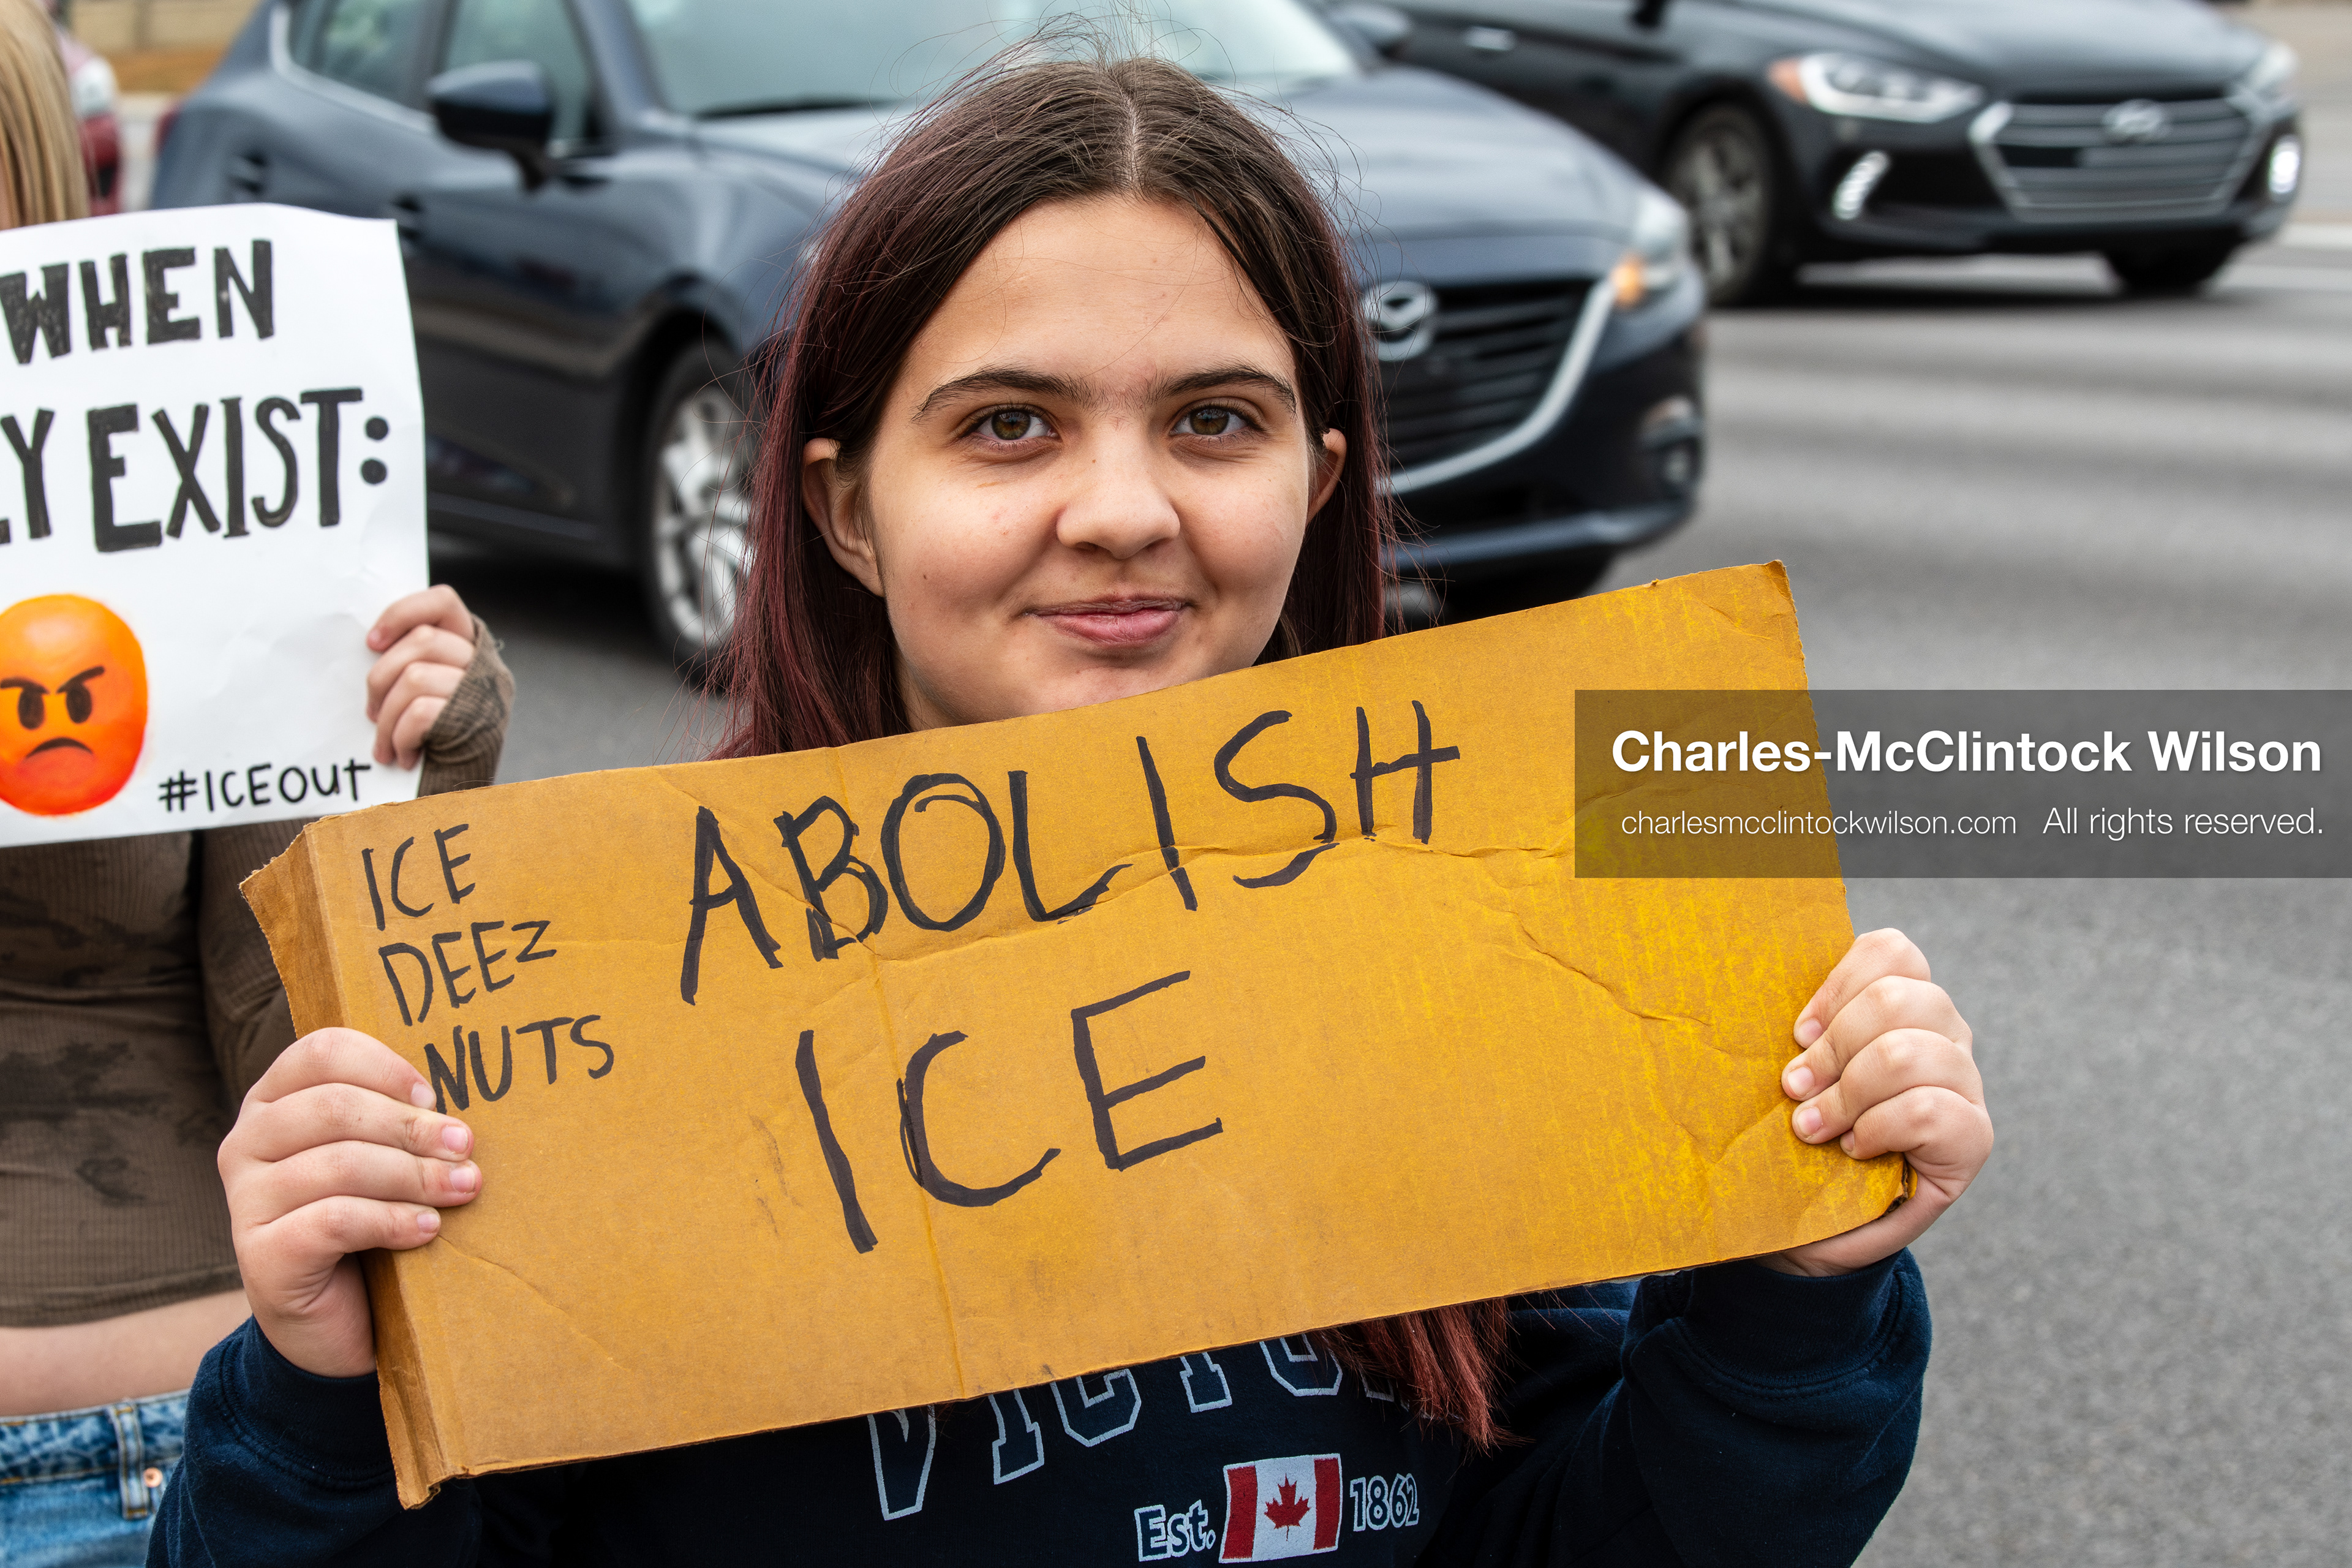 WHEN
EXIST:
#ICEOUT
ICE
DEEZ
NUTS
ABOLISH
ICE
Charles-McClintock Wilson
charlesmcclintockwilson.com All rights reserved.
Est. 1862